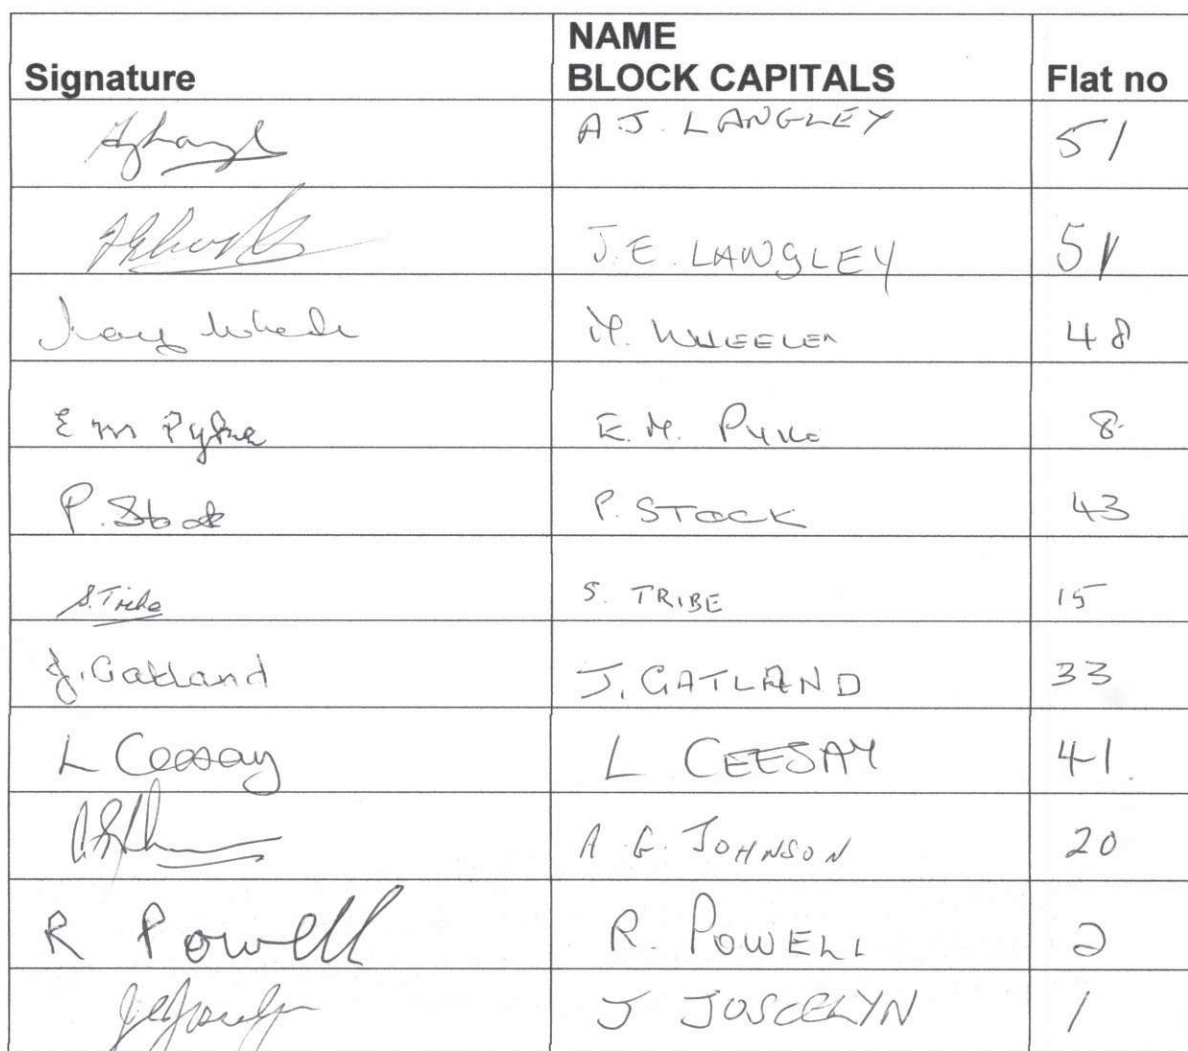 NAME
Signature BLOCK CAPITALS Flat no
A.J. LANGLEY 51
J.E. LANGLEY 51
M. WHEELER 48
E m Pyke E.M. Pyke 8
P. Stock P. STOCK 43
S. Tribe S. TRIBE 15
J. Gatland J. GATLAND 33
L Ceesay L CEESAY 41.
A G. JOHNSON 20
R Powell R. POWELL 2
J JOSCELYN 1